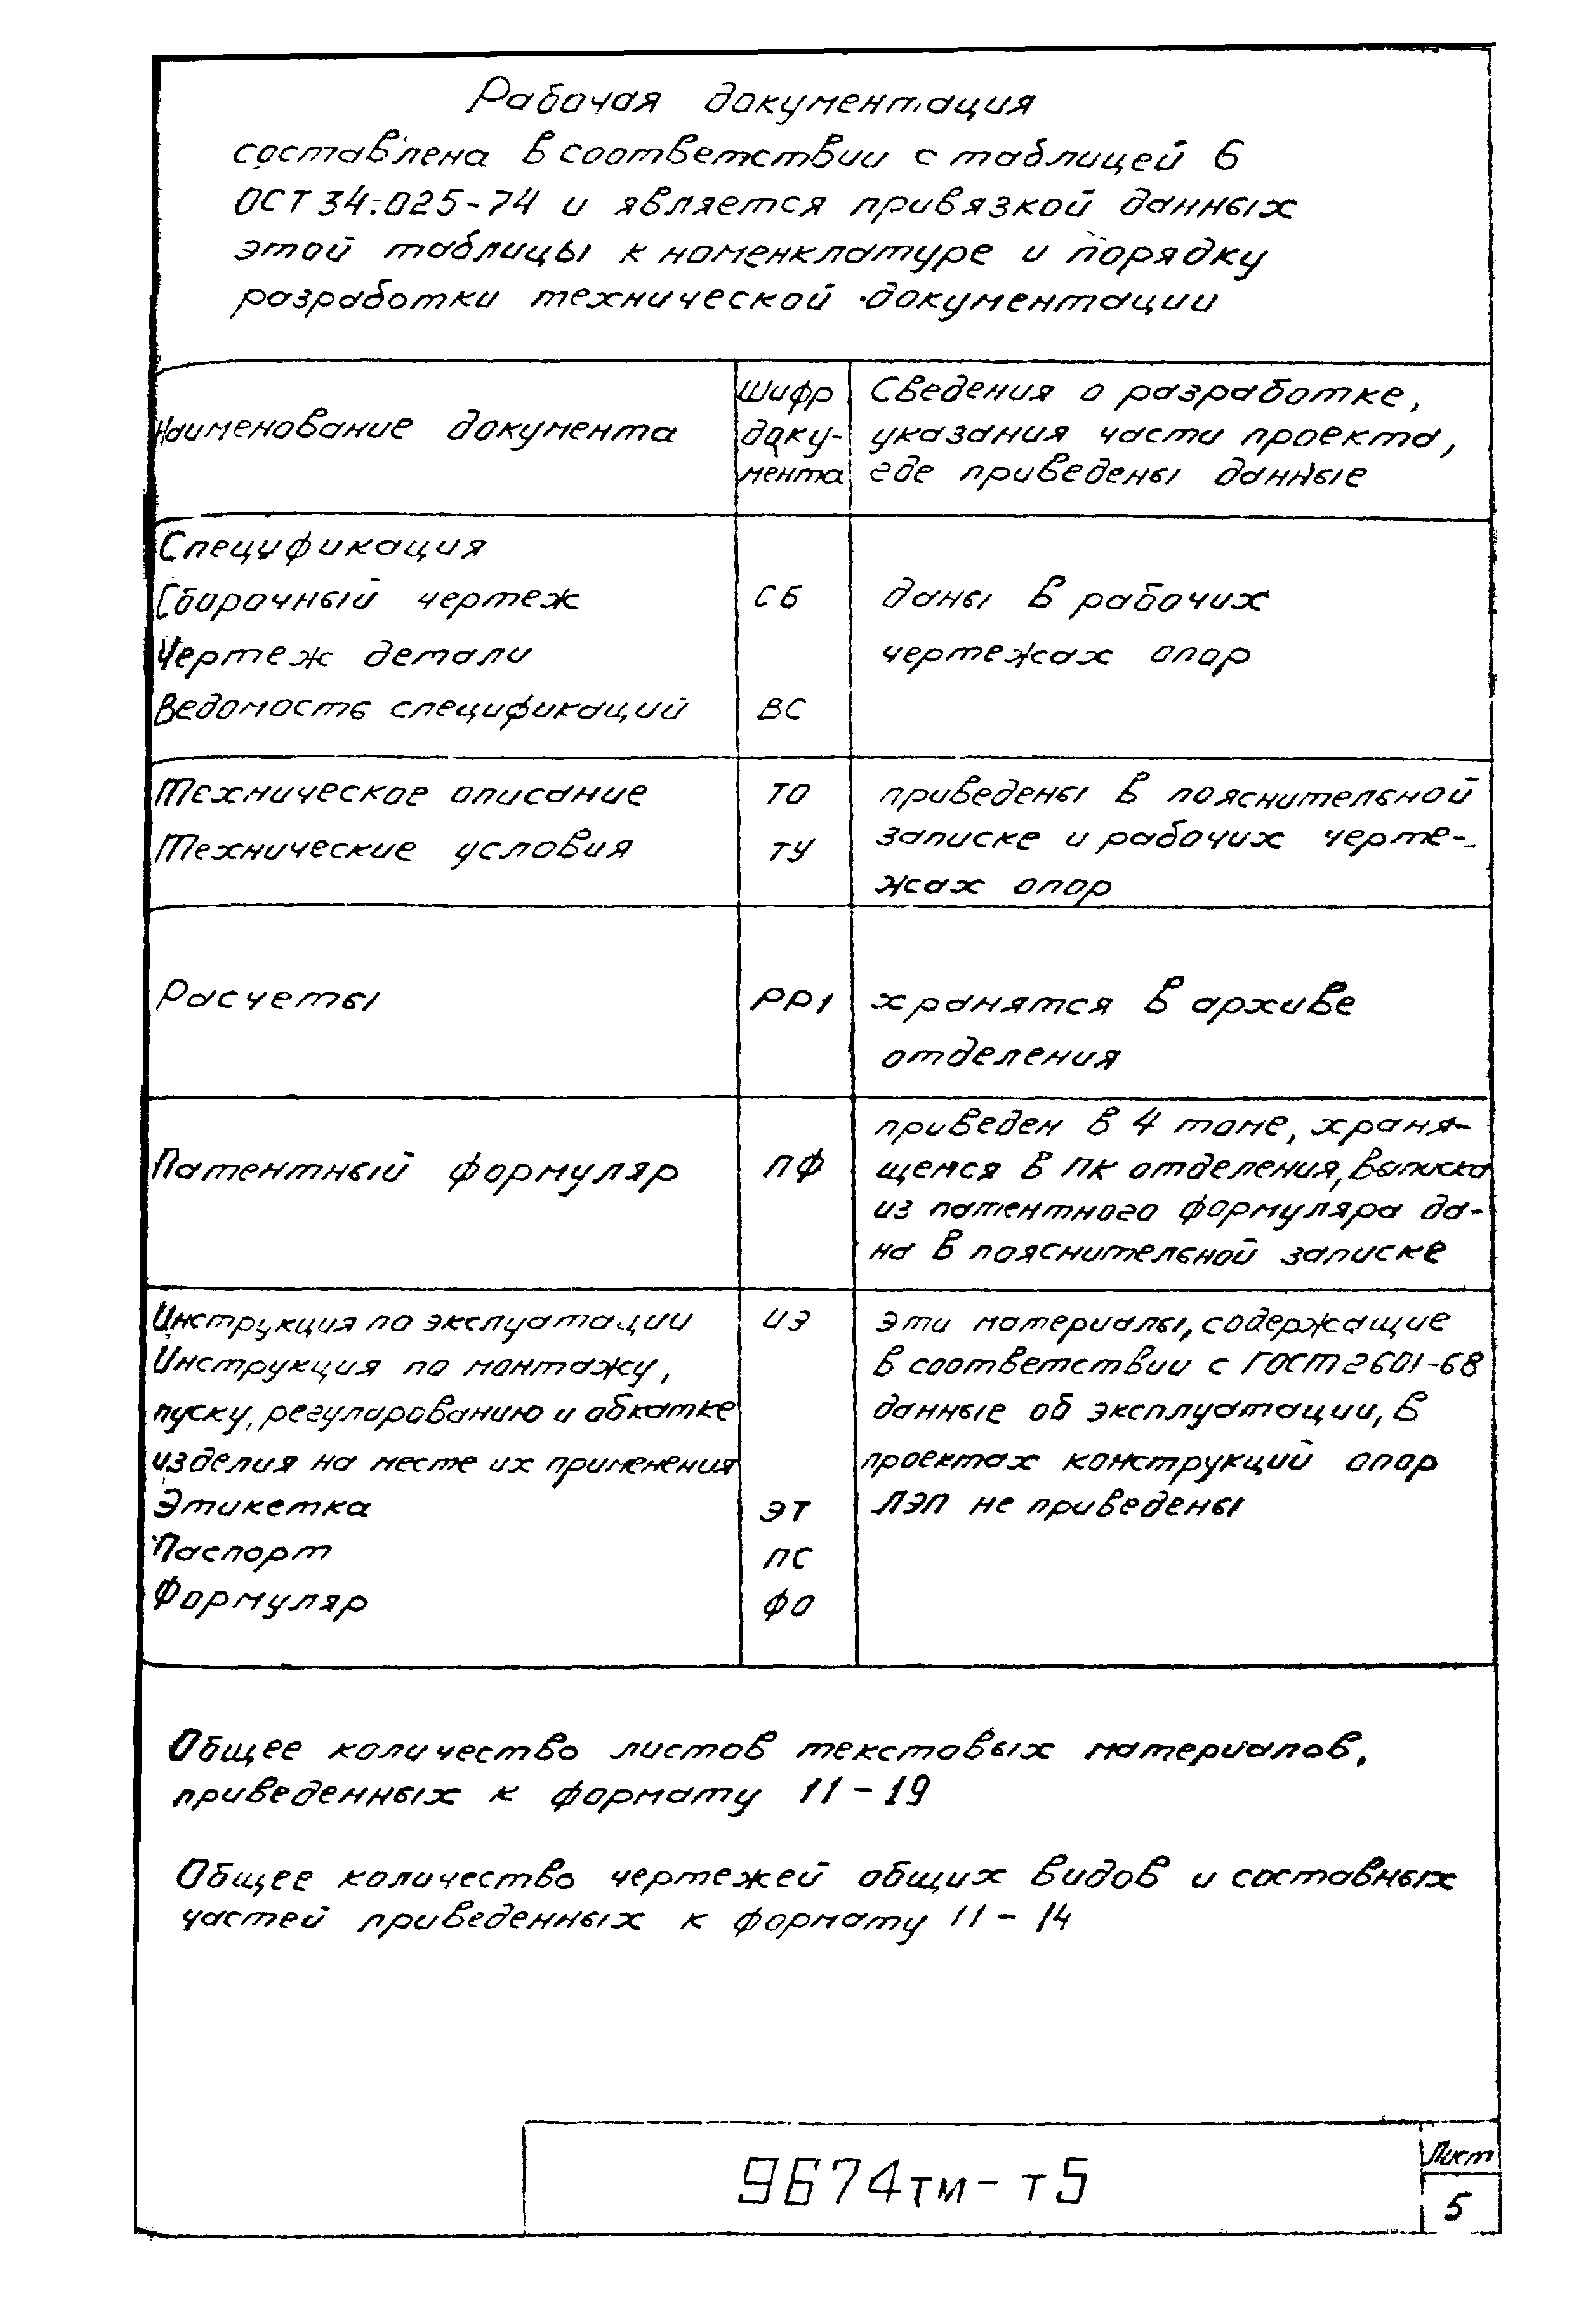 Рабочая документация
составлена в соответствии с таблицей 6
ОСТ 34.025-74 и является привязкой данных
этой таблицы к номенклатуре и порядку
разработки технической документации
Наименование документа
Шифр
доку-
мента
Сведения о разработке,
указания части проекта,
где приведены данные
Спецификация
Сборочный чертеж СБ даны в рабочих
Чертеж детали чертежах опор
Ведомость спецификаций ВС
Техническое описание ТО приведены в пояснительной
Технические условия ТУ записке и рабочих черте-
жах опор
Расчеты РР1 хранятся в архиве
отделения
Патентный формуляр ПФ
приведен в 4 томе, храня-
щемся в ПК отделения, выписка
из патентного формуляра да-
на в пояснительной записке
Инструкция по эксплуатации ИЭ эти материалы, содержащие
Инструкция по монтажу, в соответствии с ГОСТ 2601-68
пуску, регулированию и обкатке данные об эксплуатации, в
изделия на месте их применения проектах конструкций опор
Этикетка ЭТ ЛЭП не приведены
Паспорт ПС
Формуляр ФО
Общее количество листов текстовых материалов,
приведенных к формату 11 - 19
Общее количество чертежей общих видов и составных
частей приведенных к формату 11 - 14
9674тм - т5
Лист
5